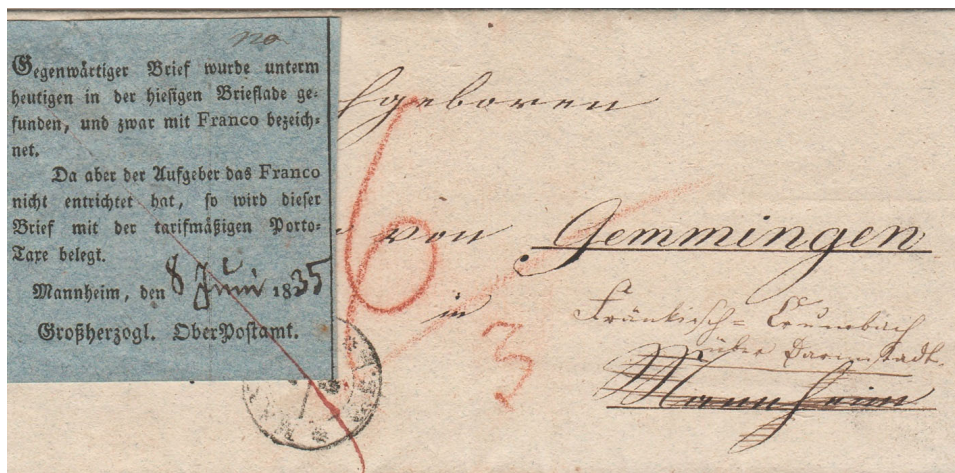 Gegenwärtiger Brief wurde unterm
heutigen in der hiesigen Brieflade ge-
funden, und zwar mit Franco bezeich-
net.
Da aber der Aufgeber das Franco
nicht entrichtet hat, so wird dieser
Brief mit der tarifmäßigen Porto-
Taxe belegt.
Mannheim, den 8 Juni 1835
Großherzogl. OberPostamt.
hgeboren
6
von Gemmingen
in
3
Fränkisch-Crumbach
über Darmstadt
Mannheim